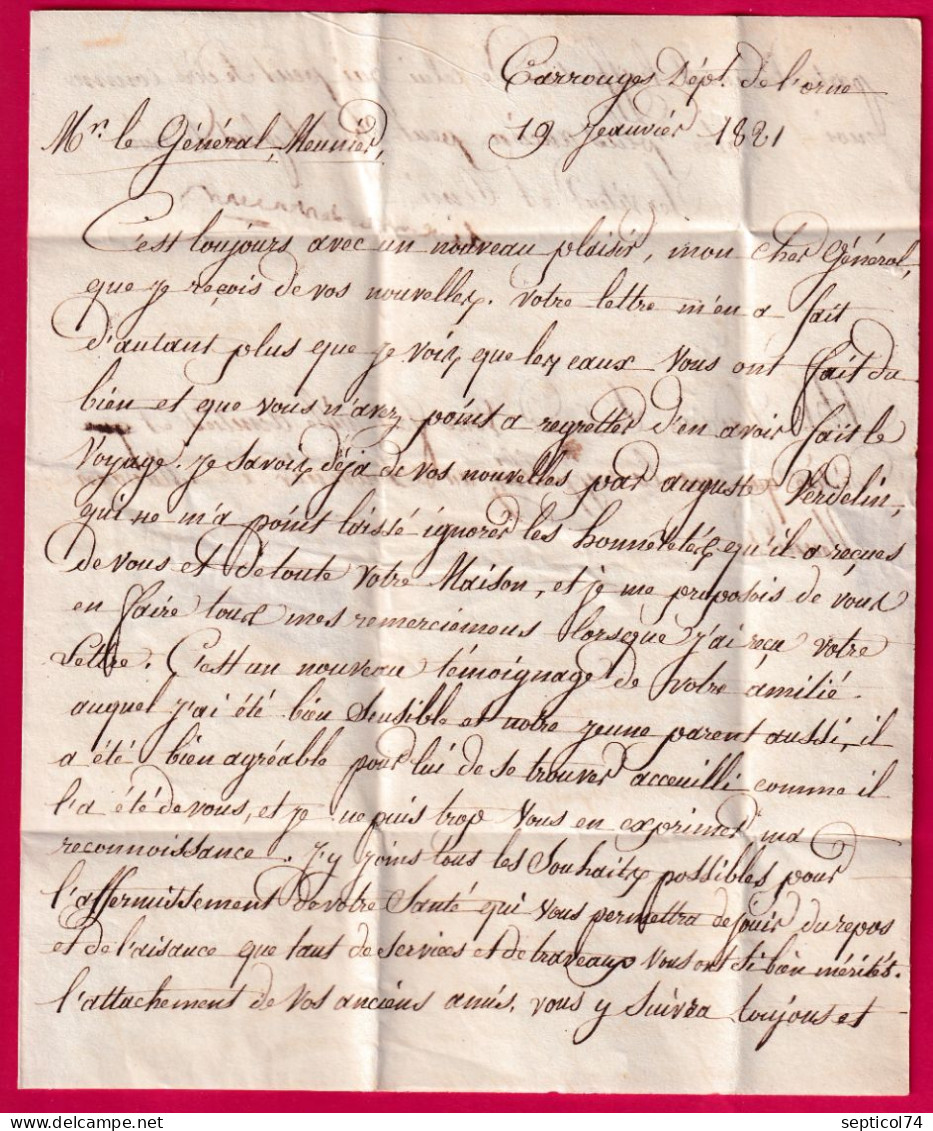 Carrouges Dépt. de l'orne
19 Jeanvier 1821
Mr. le Général, Meunier,
C'est toujours avec un nouveau plaisir, mon cher Général,
que je reçois de vos nouvelles. votre lettre m'en a fait
d'autant plus que je vois, que les eaux vous ont fait du
bien et que vous n'avez point a regretter d'en avoir fait le
voyage. je savois déja de vos nouvelles par auguste Verdelin,
qui ne m'a point laissé ignorer les honnêtetés qu'il a reçues
de vous et de toute votre Maison, et je me proposois de vous
en faire tous mes remerciemens lorseque j'ai reçu votre
Lettre. C'est un nouveau témoignage de votre amitié
auquel j'ai été bien sensible et notre jeune parent aussi, il
a été bien agréable pour lui de se trouver acceuilli comme il
l'a été de vous, et je ne puis trop vous en exprimer ma
reconnoissance. J'y joins tous les souhaits possibles pour
l'affermissement de votre santé qui vous permettra de jouir du repos
et de l'aisance que tant de services et de traveaux vous ont si bien mérités.
l'attachement de vos anciens amis, vous y suivra toujous et
septicol74